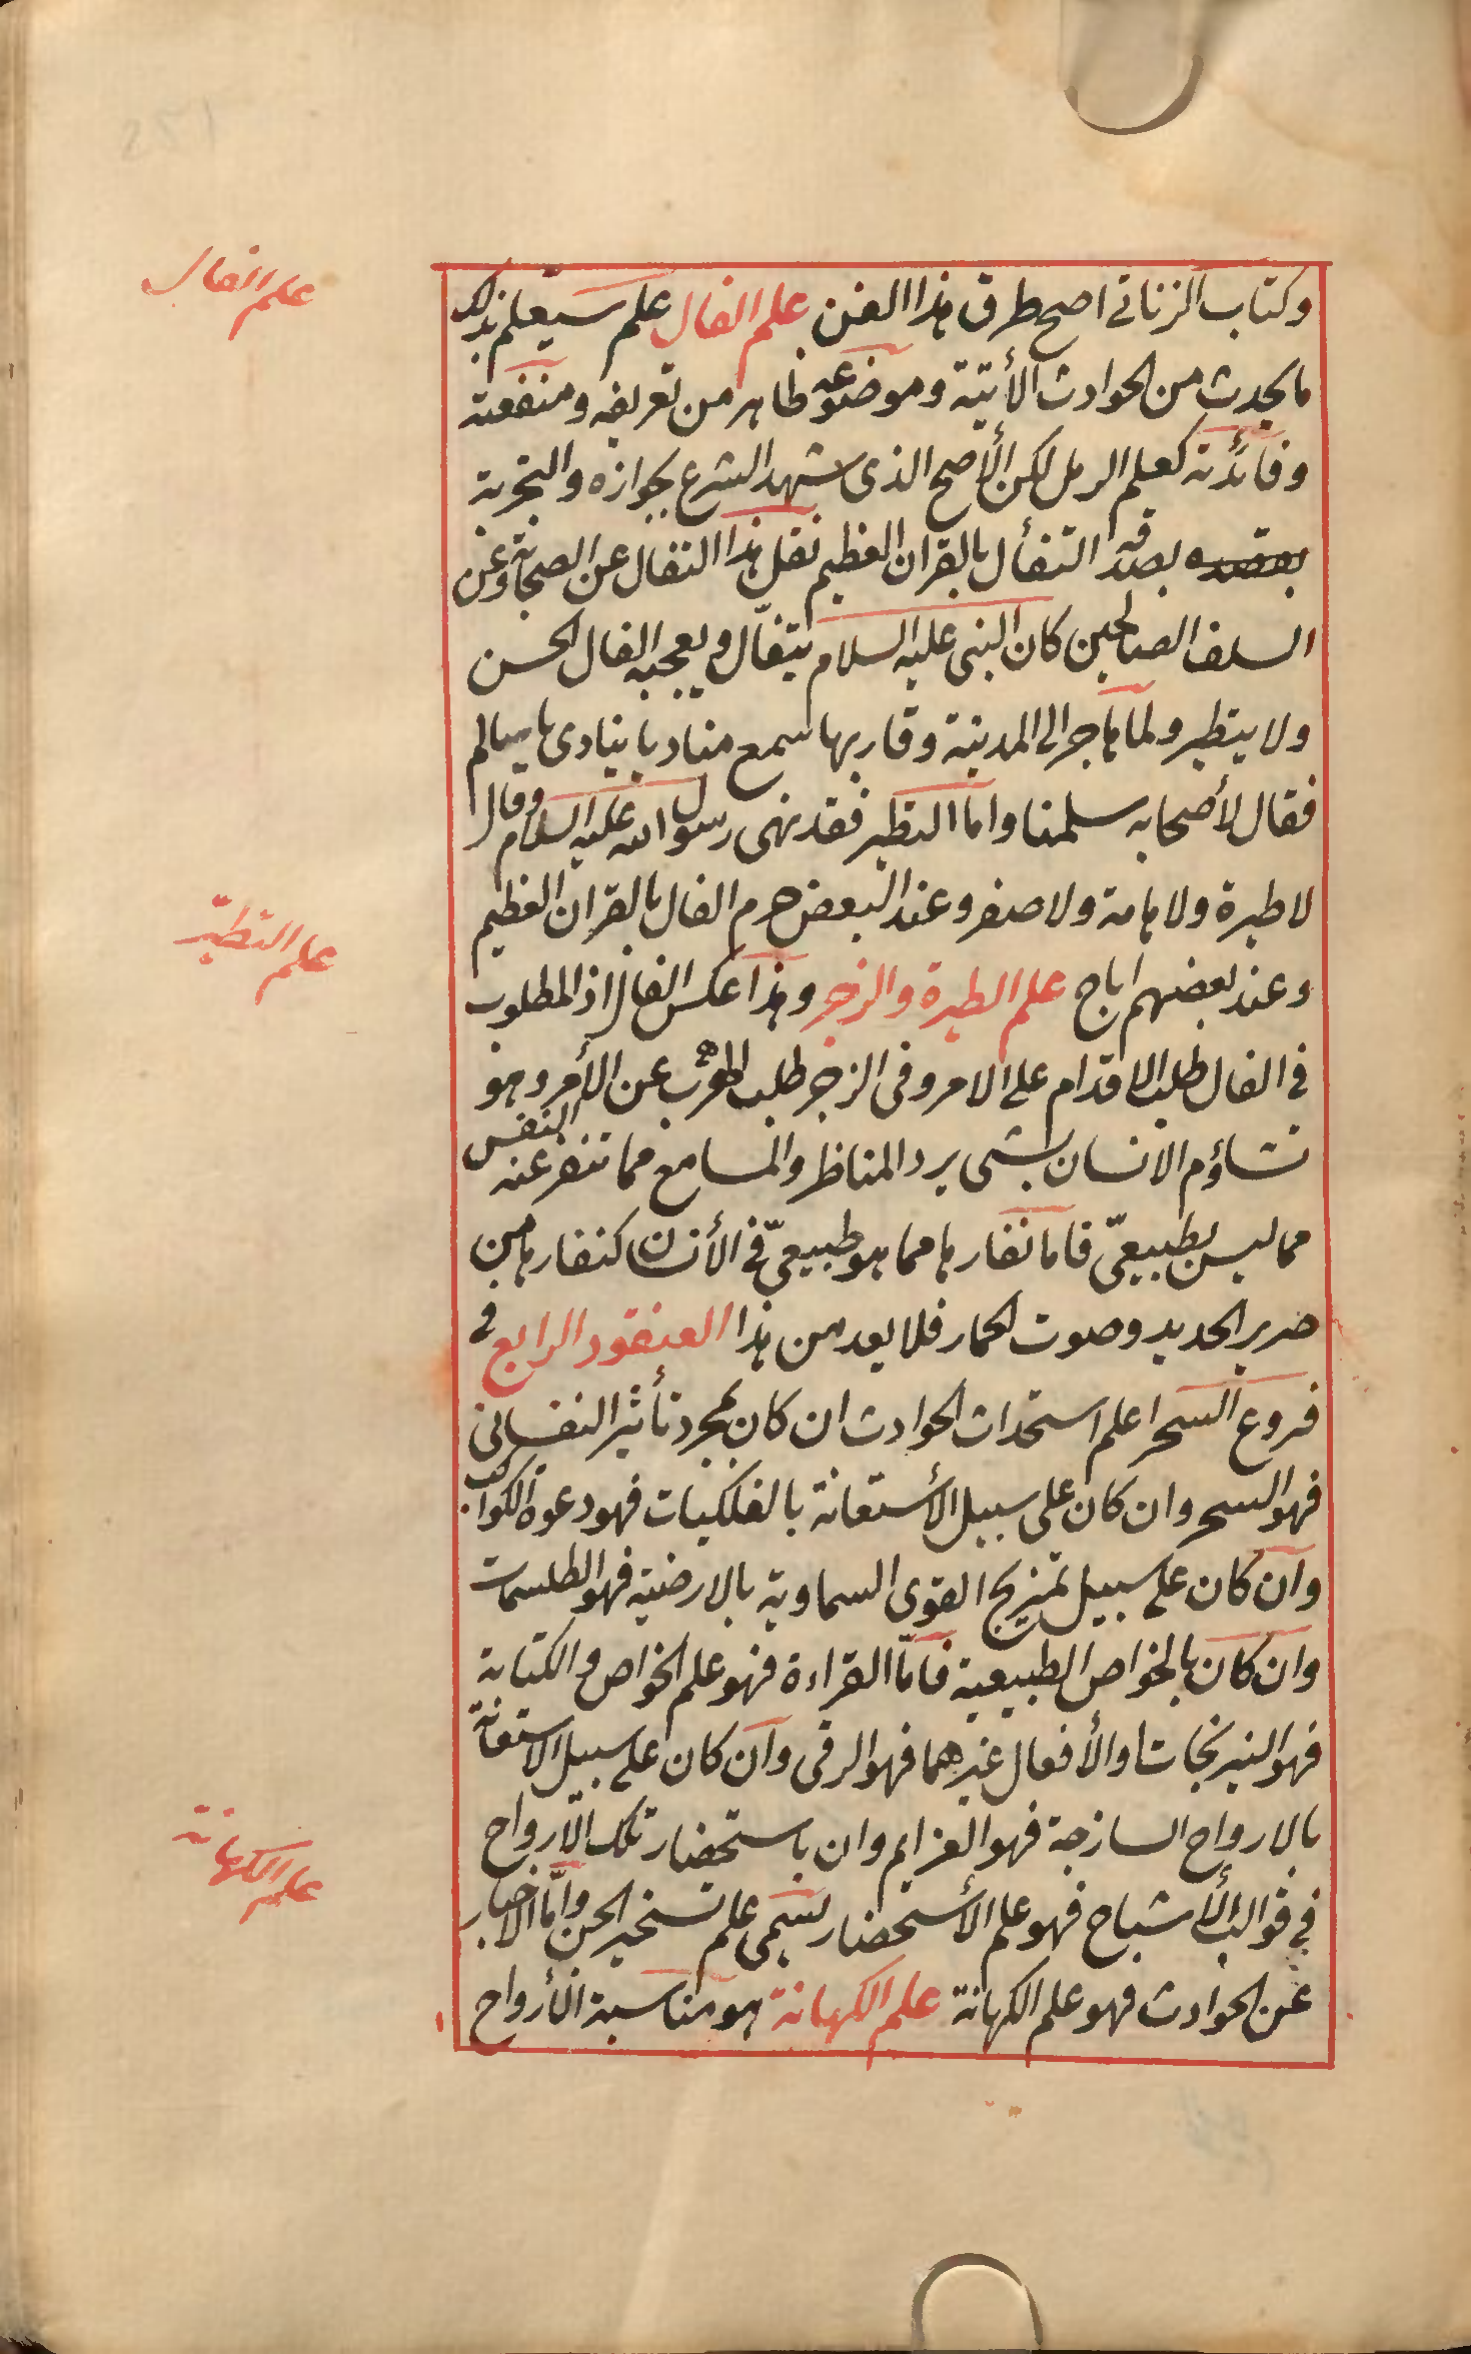 علم الفال
وكتاب الزناتى اصح طرق هذا الفن علم الفال علم سيعلم بذلك
ما يحدث من الحوادث الأتية وموضوعه ظاهر من تعريفه ومنفعته
وفائدته كعلم الرمل لكن الأصح الذى شهد الشرع بجوازه والتجربة
بصدقه التفأل بالقران العظيم نقل هذا التفال عن الصحابة وعن
السلف الصالحين كان النبى عليه السلام يتفأل ويعجبه الفال الحسن
ولا يتطير ولما هاجر الى المدينة وقاربها سمع مناديا ينادى يا سالم
فقال لأصحابه سلمنا واما التطير فقد نهى رسول الله عليه السلام وقال
علم التطيّر
لا طيرة ولا هامة ولا صفر وعند البعض حرم الفال بالقران العظيم
وعند بعضهم اباح علم الطيرة والزجر وهذا عكس الفال اذ المطلوب
فى الفال طلب الاقدام على الامر وفى الزجر طلب الهرب عن الأمر وهو
تشاؤم الانسان بشى يرد المناظر والمسامع مما تنفر عنه النفس
مما ليس بطبيعىّ فاما نفارها مما هو طبيعىّ فى الأنسان كنفارها من
صرير الحديد وصوت الحمار فلا يعد من هذا العنقود الرابع فى
فروع السحر اعلم استحداث الحوادث ان كان بمجرد تأثير النفسانى
فهو السحر وان كان على سبيل الأستعانة بالفلكيات فهو دعوة الكواكب
وان كان على سبيل تمزيج القوى السماوية بالارضية فهو الطلسمات
وان كان بالخواص الطبيعية فامّا القراءة فهو علم الخواص والكتابة
فهو النيرنجات والأفعال غيرهما فهو الرقى وان كان على سبيل الاستعانة
علم الكهانة
بالارواح الساذجة فهو العزايم وان باستحضار تلك الارواح
فى قوالب الأشباح فهو علم الأستحضار يسمى علم تسخير الجن وامّا الاخبار
عن الحوادث فهو علم الكهانة علم الكهانة هو مناسبة الأرواح